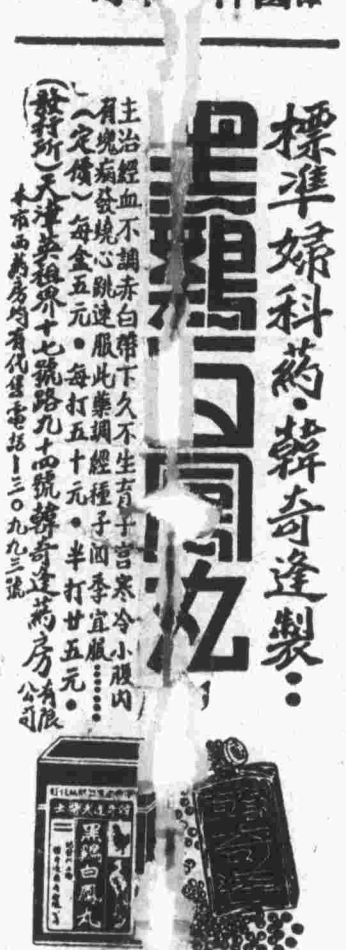 標準婦科药·韓奇逢製
黑鷄白鳳丸
主治經血不調赤白帶下久不生育子宮寒冷小腹內
有塊病發燒心跳連服此藥調經種子四季宜服
（定價）每盒五元·每打五十元·半打廿五元·
（發行所）天津英租界十七號路九十四號韓奇逢葯房有限公司
本市西藥房均有代售電話三〇九九三號
黑鷄白鳳丸
韓奇逢